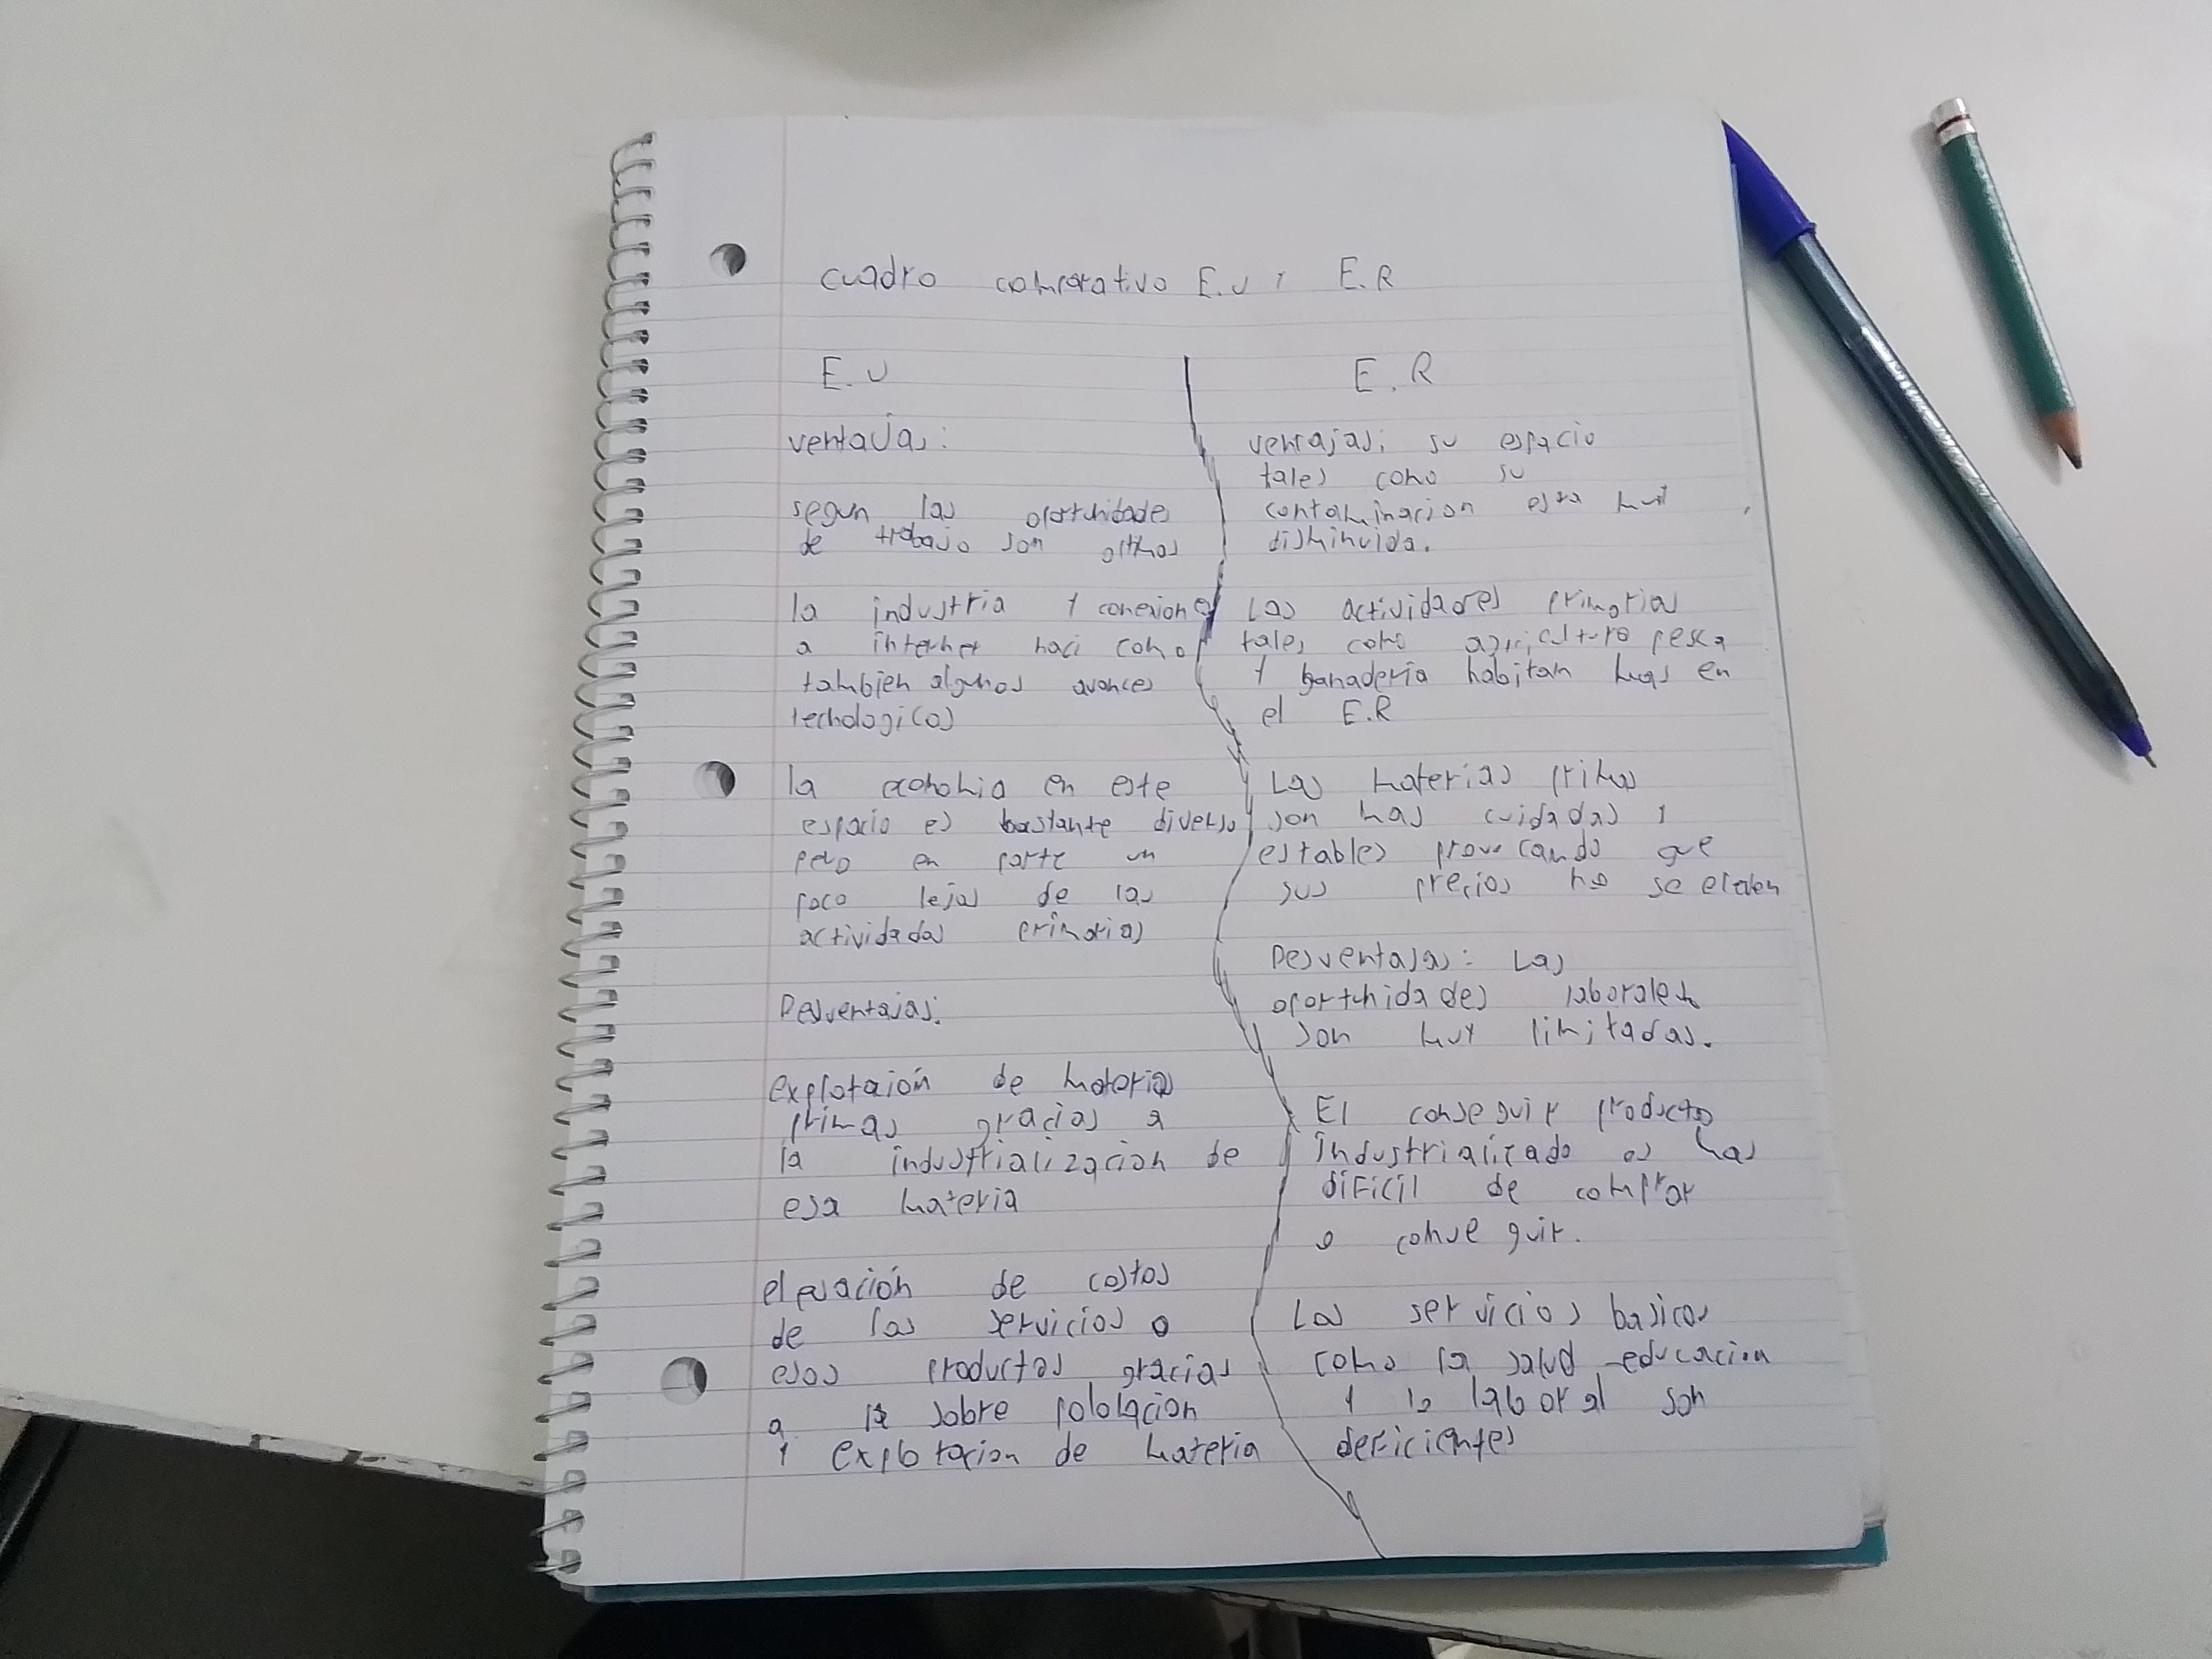 cuadro comparativo E.U y E.R
E.U
ventajas:
segun las oportunidades
de trabajo son optimos
la industria y conexiones
a internet haci como
tambien algunos avances
tecnologicos
la economia en este
espacio es bastante diverso
pero en parte un
poco lejos de las
actividades primarias
Desventajas:
explotaión de materias
primas gracias a
la industrialización de
esa materia
elevación de costos
de los servicios o
esos productos gracias
a la sobre poblacion
y explotacion de materia
E.R
ventajas: su espacio
tales como su
contaminacion esta muy
disminuida.
Las actividades primarias
tales como agricultura pesca
y ganaderia habitan mas en
el E.R
Las materias primas
son mas cuidadas y
estables provocando que
sus precios no se eleven
Desventajas: Las
oportunidades laborales
son muy limitadas.
El conseguir productos
industrializado es mas
dificil de comprar
o conseguir.
Los servicios basicos
como la salud educacion
y lo laboral son
deficientes